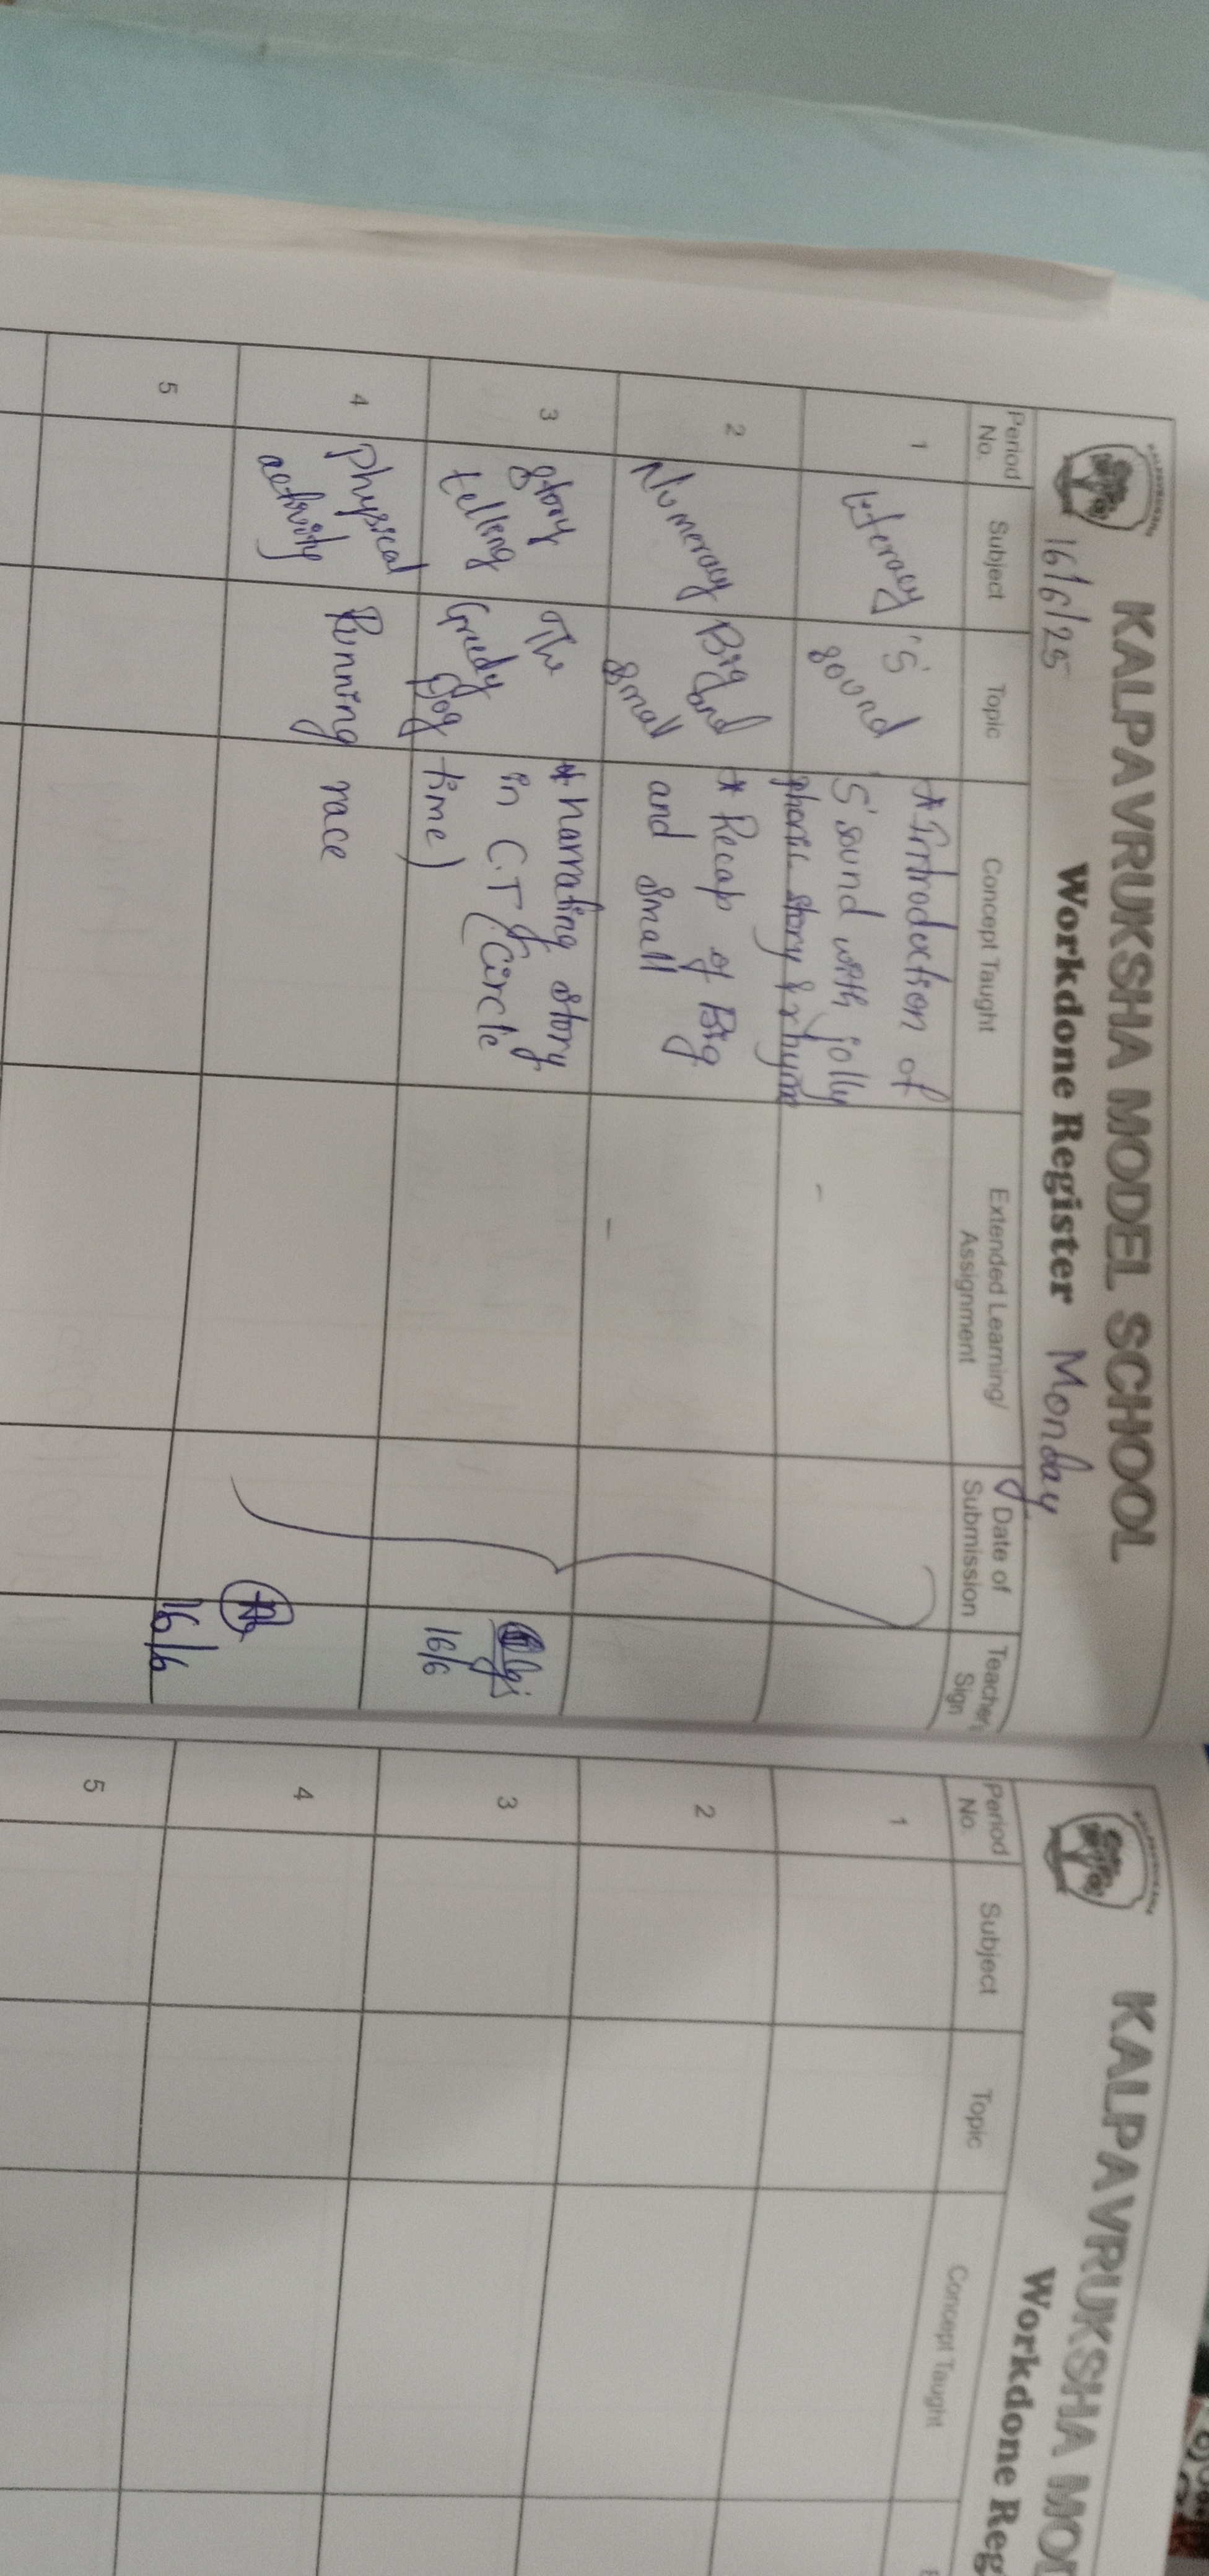 KALPAVRUKSHA MODEL SCHOOL
16/6/25 Workdone Register Monday
Period No. Subject Topic Concept Taught Extended Learning/ Assignment Date of Submission Teacher's Sign
1 Literacy 'S' sound * Introduction of
'S' sound with jolly
phonic story & rhyme -
2 Numeracy Big and Small * Recap of Big
and small -
3 Story telling The Greedy Dog * Narrating story
in C.T (Circle
time) 16/6
4 Physical activity Running race
16/6
5
KALPAVRUKSHA MOD
Workdone Reg
Period No. Subject Topic Concept Taught E
1
2
3
4
5